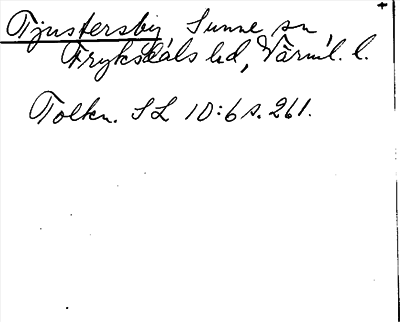 Tjustersby Sunne sn,
Fryksdals hd, Värml. l.
Tolkn. SL 10:6 s. 261.